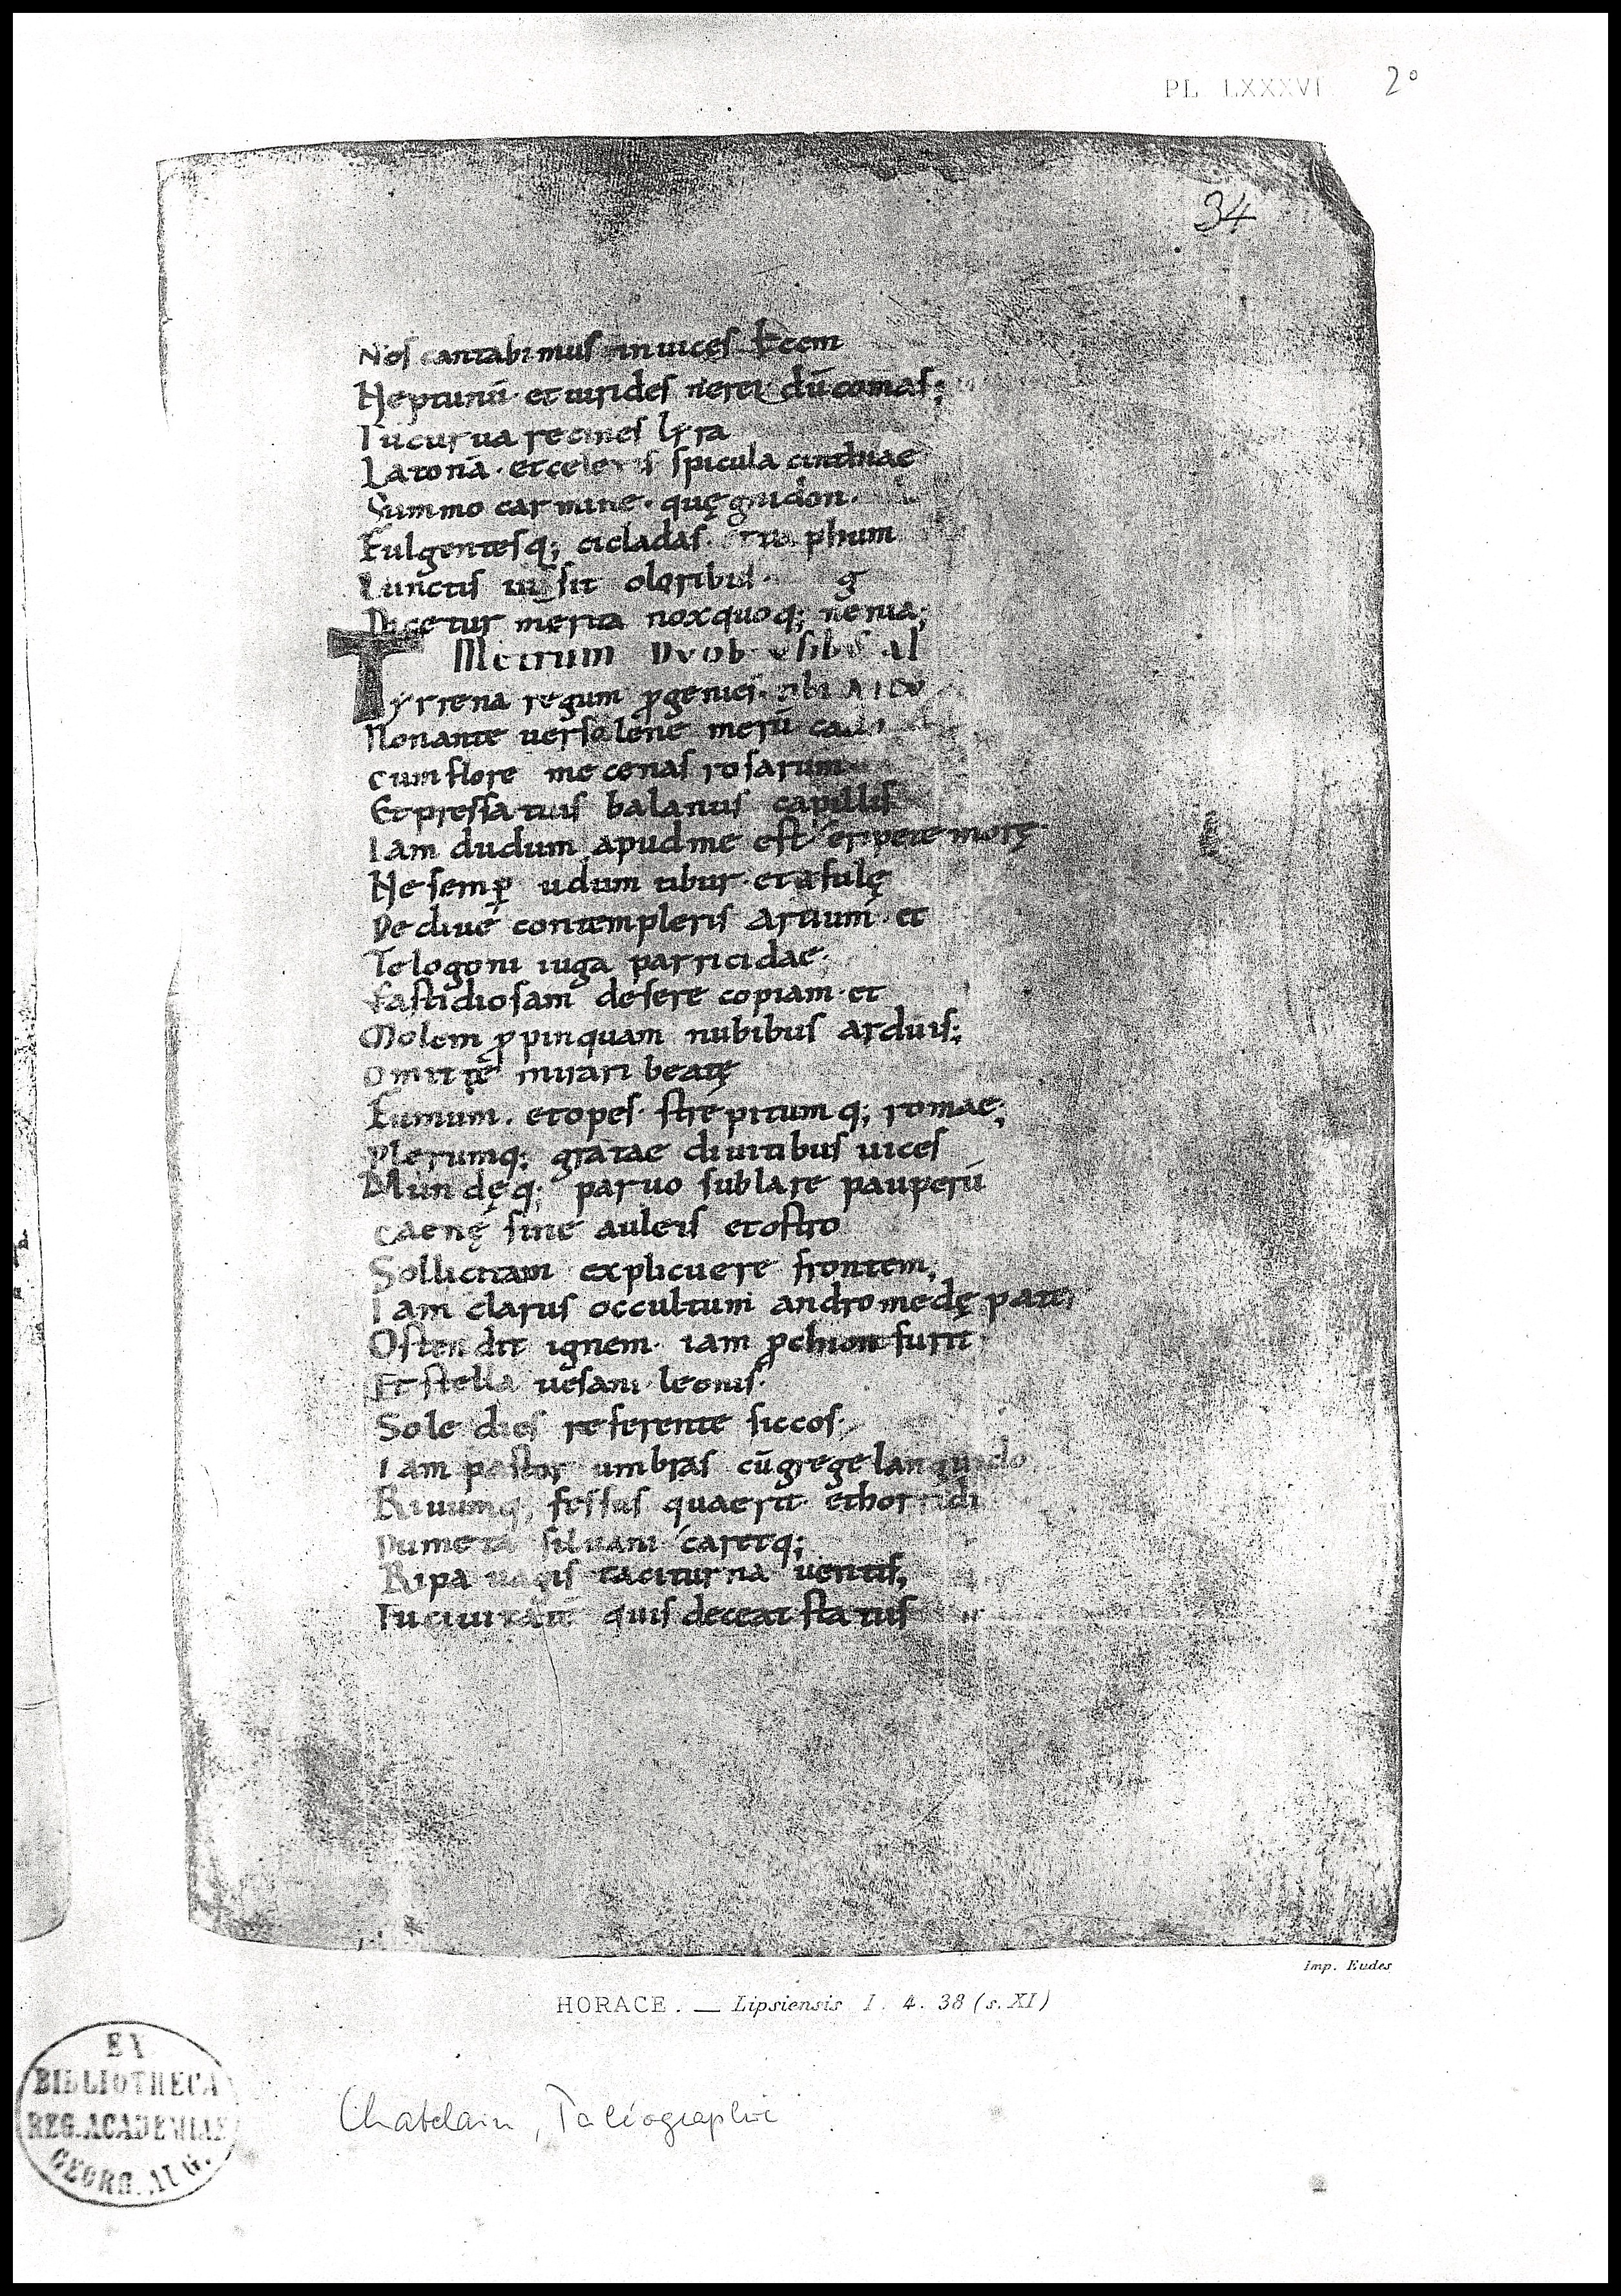 PL LXXXVI 2°
34
Nos cantabimus inuices
Neptunū· et uirides nerei dū comas;
Tu curua recines lyra
Latonā· et celeris spicula cinthiae
Summo carmine· quę gnidon·
Fulgentesq; cicladas· phum
Iunctis uisit oloribus· g
Dicetur merita nox quoq; nenia;
Metrum Dvob
Tyrrena regum ꝓgenies· tibi
Non ante uerso lene merū cado
cum flore mecenas rosarum
Et pressa tuis balanus capillis
Iam dudum apud me est· eripe te morę·
Ne semp̱ udum tibur· et ęsulę
Decliue contempleris aruum· et
Telogoni iuga parricidae;
Fastidiosam desere copiam· et
Molem ꝓpinquam nubibus arduis;
omitte mirari beatę
Fumum· et opes· strepitumq; romae;
Plerumq; gratae diuitibus uices
Mundęq; paruo sub lare pauperū
caenę sine auleis et ostro
Sollicitam explicuere frontem;
Iam clarus occultum andromedę pater
Ostendit ignem· iam ꝓchion furit·
Et stella uesani leonis·
Sole dies referente siccos·
Iam pastor umbras cū grege languido
Riuumq; fessus quaerit· et horridi
Dumeta siluani caretq;
Ripa uagis taciturna uentis;
Tu ciuitatē quis deceat status
Imp. Eudes
HORACE. — Lipsiensis I. 4. 38 (s. XI)
EX
BIBLIOTHECA
REG. ACADEMIAE
GEORG. AUG.
Chatelain, Paléographie